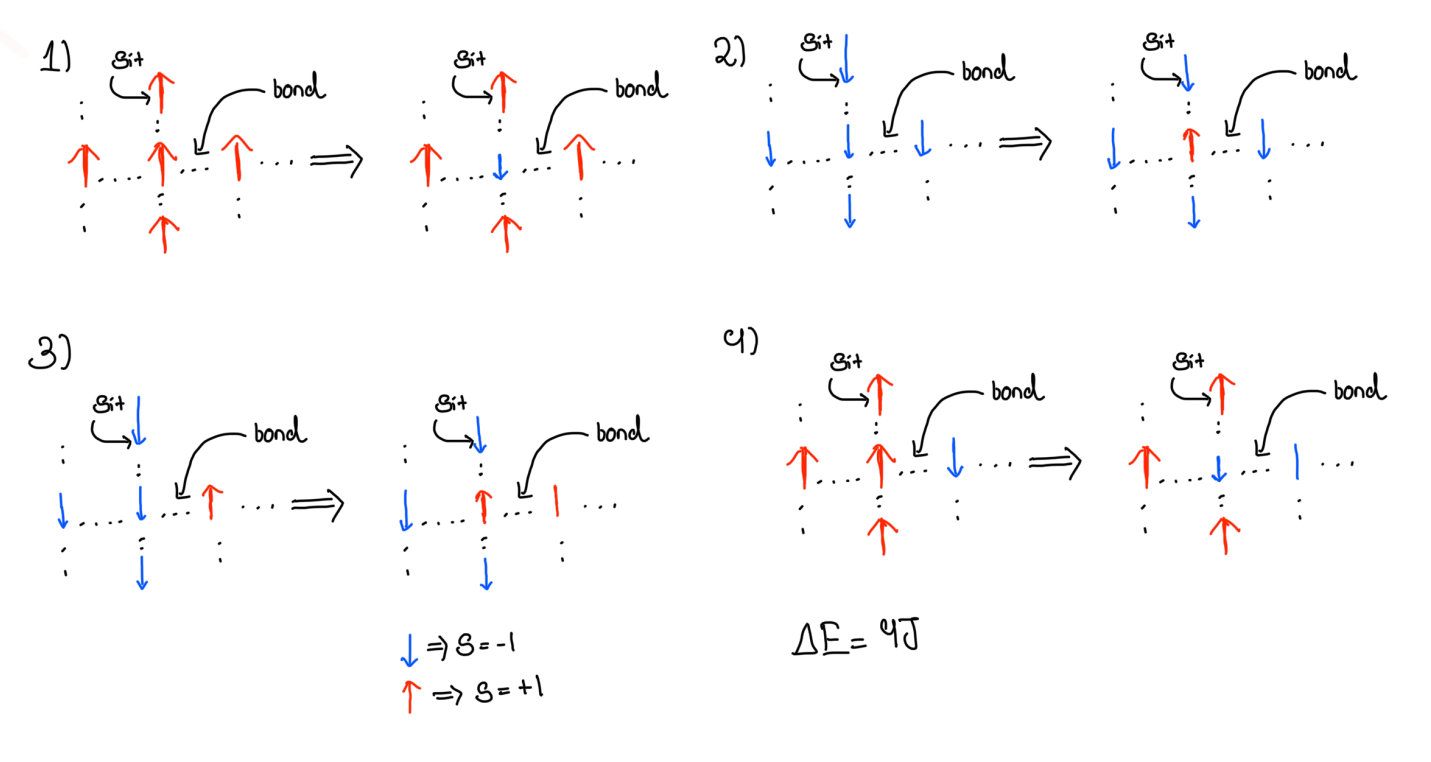 1)
Sit
bond
Sit
bond
2)
Sit
bond
Sit
bond
3)
Sit
bond
Sit
bond
↓ ⇒ S = -1
↑ ⇒ S = +1
4)
Sit
bond
Sit
bond
ΔE = 4J